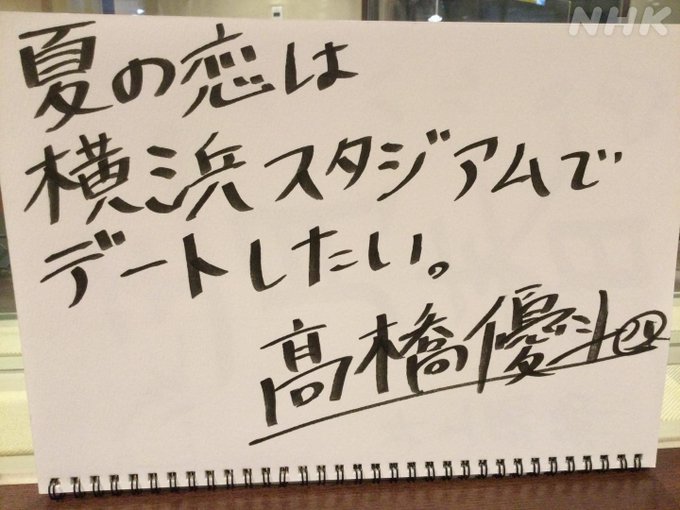 NHK
夏の恋は
横浜スタジアムで
デートしたい。
髙橋優斗